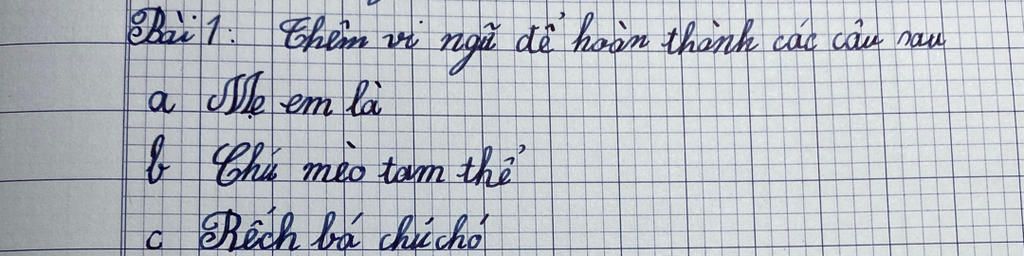 Bài 1: Thêm vị ngữ để hoàn thành các câu sau
a Mẹ em là
b Chú mèo tam thể
c Rếch bá chú chó